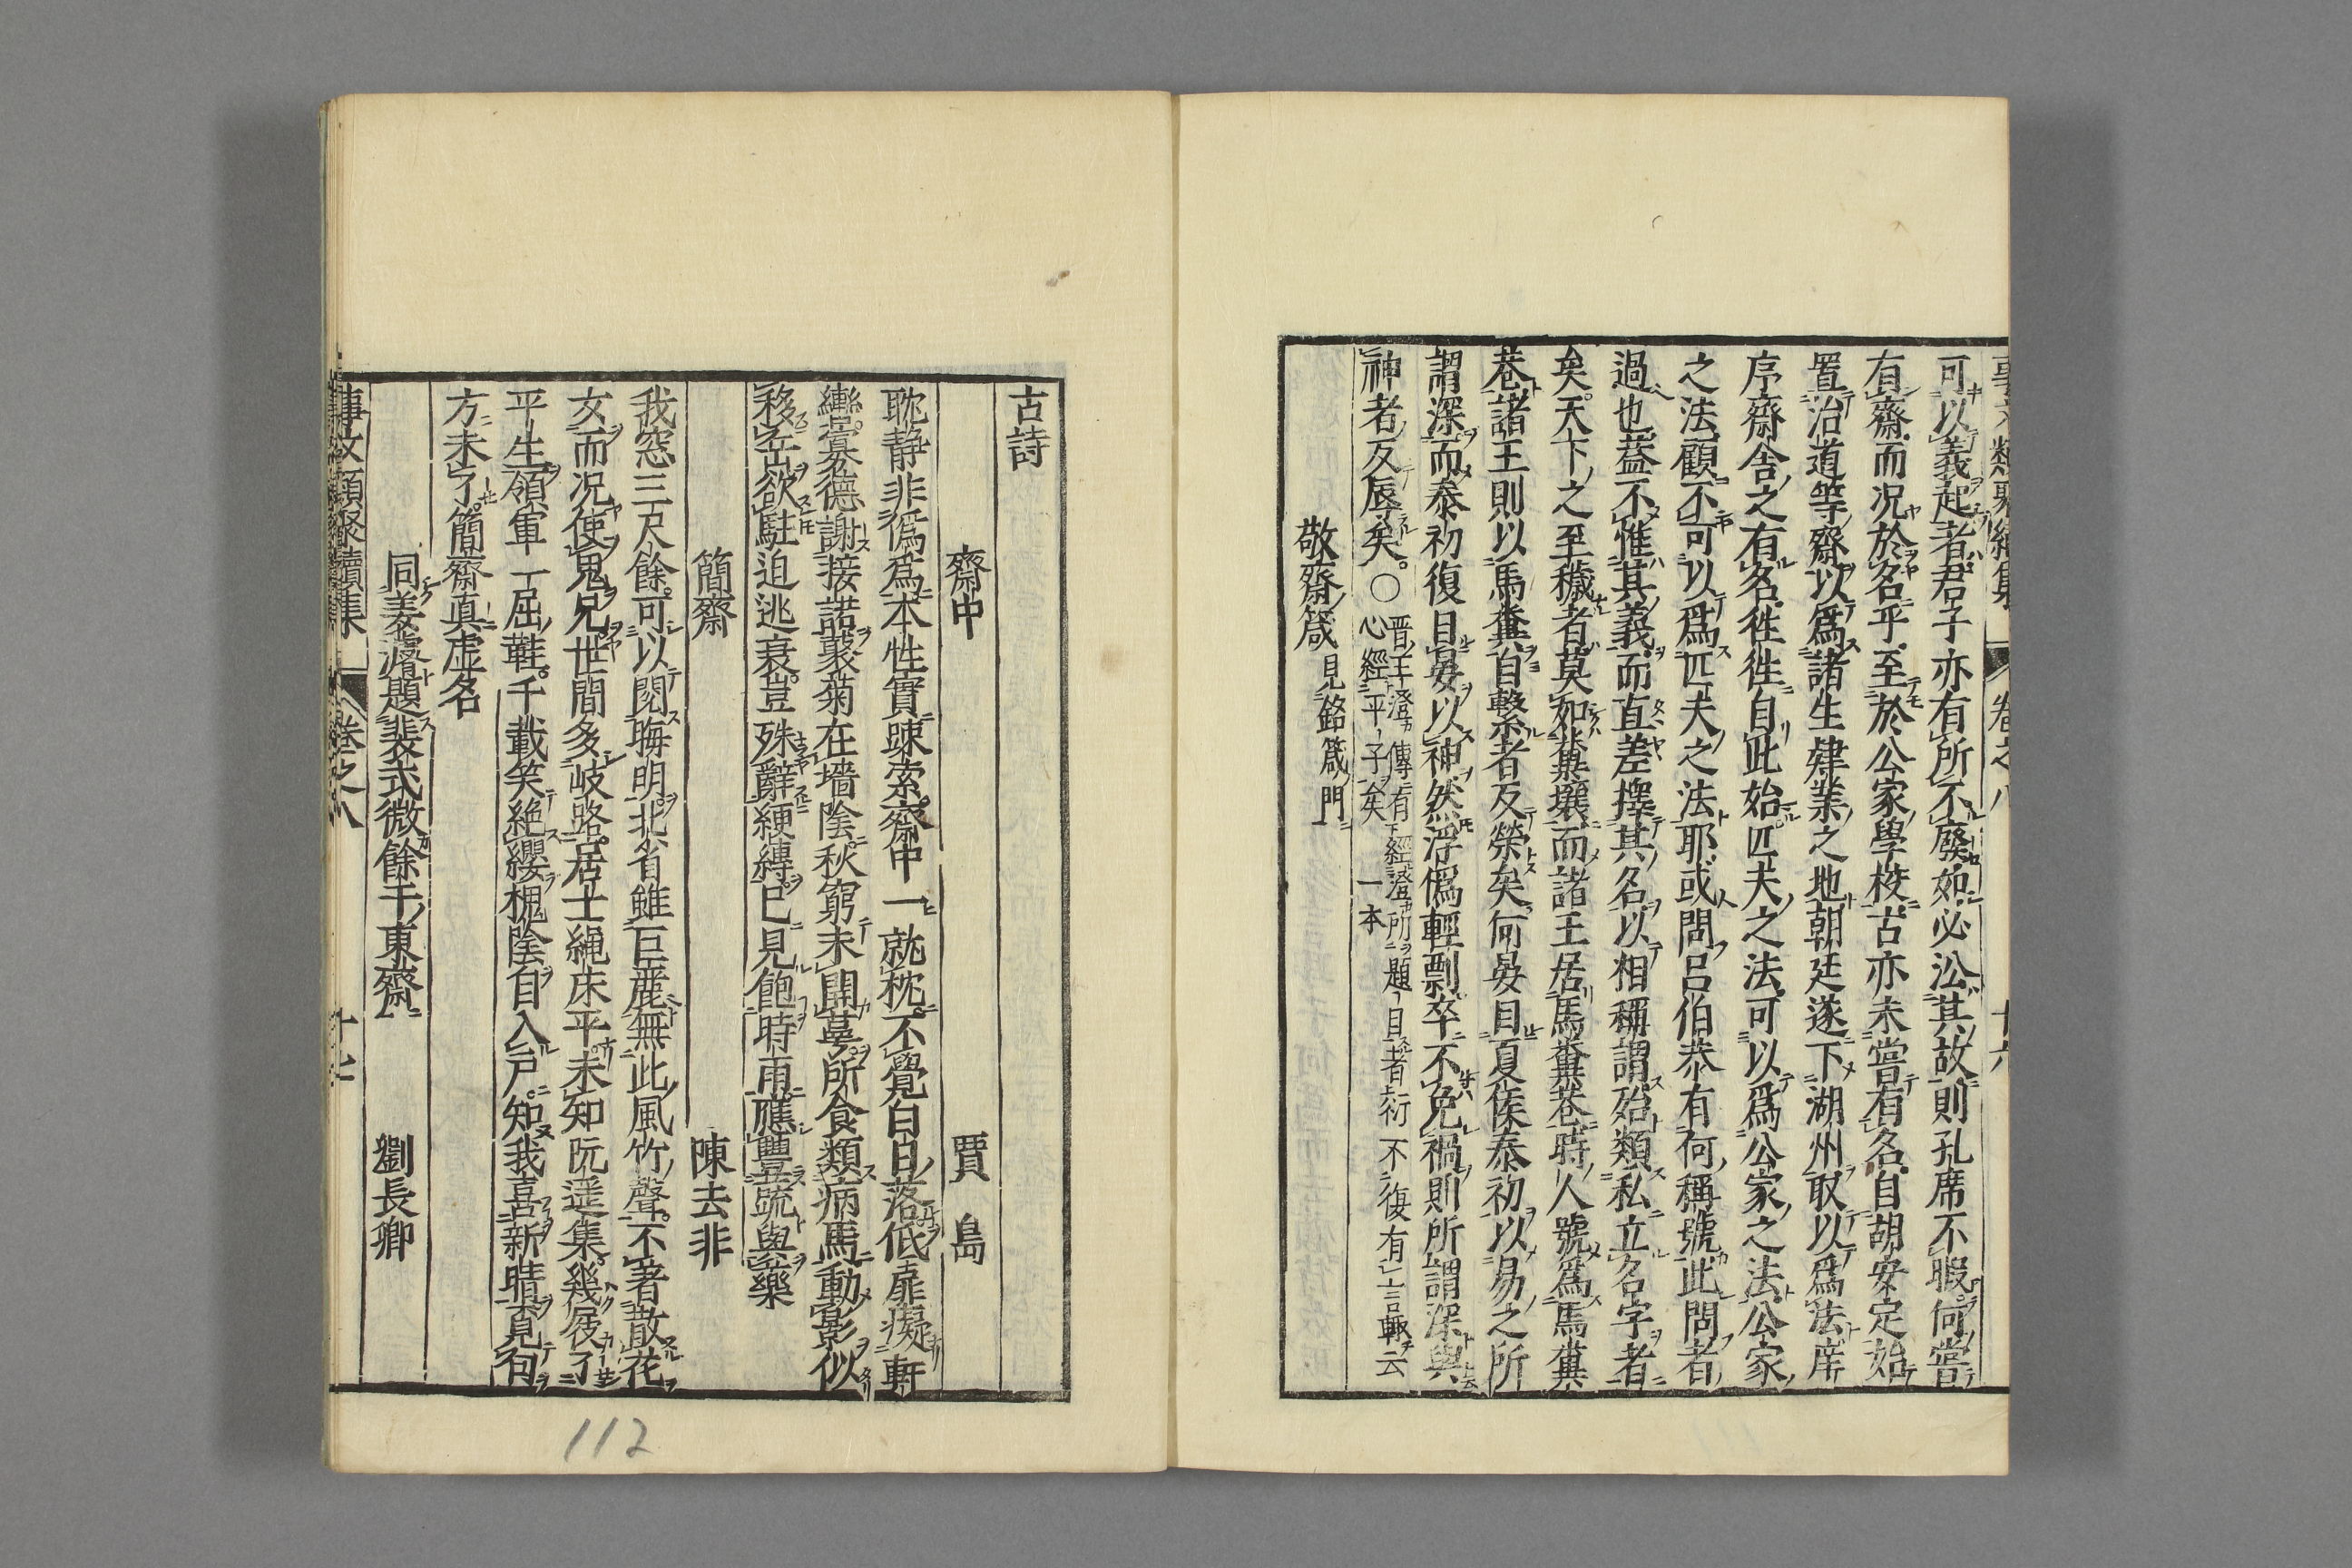 事文類聚續集 卷之八 十六
可以義起者君子亦有所不廢如必泥其故則孔席不暇何嘗
有齋而况於名乎至於公家學校古亦未嘗有名自胡安定始
置治道等齋以爲諸生肄業之地朝廷遂下湖州取以爲法庠
序齋舎之有名徃徃自此始匹夫之法可以爲公家之法公家
之法顧不可以爲匹夫之法耶或問吕伯恭有何稱號此問者
過也蓋不惟其義而直差擇其名以相稱謂殆類私立名字者
矣天下之至穢者莫如糞壤而諸王居馬糞巷時人號爲馬糞
巷諸王則以馬糞自繫者反榮矣何晏目夏侯泰初以易之所
謂深而泰初復目晏以神然浮僞輕剽卒不免禍則所謂深與
神者反辱矣○晋王澄傳有經澄所題目者衍不復有言輙云
心經平子矣一本
敬齋箴見銘箴門
古詩
齋中 賈島
耽静非僞爲本性實踈索齋中一就枕不覺白日落低扉礙軒
轡寡德謝接諾叢菊在墻陰秋窮未開萼所食類病馬動影似
移岳欲駐迫逃衰豈殊辭綆縛已見飽時雨應豐蔬與藥
簡齋 陳去非
我窓三尺餘可以閱晦明北省雖巨麗無此風竹聲不著散花
女而况使鬼兄世間多岐路居士繩床平未知阮遥集幾屐了
平生領軍一屈鞋千載笑絶纓槐陰自入户知我喜新晴覓句
方未了簡齋真虚名
同姜濬題裴式微餘干東齋 劉長卿
事文類聚續集 卷之八 十七
112